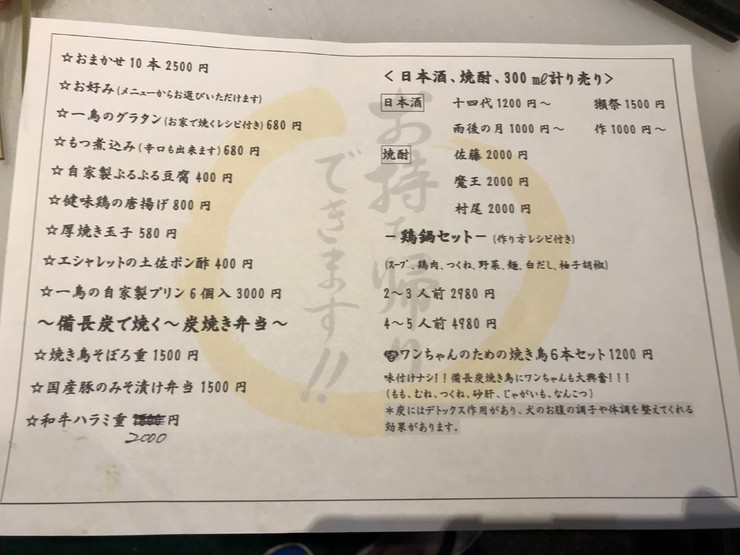 ☆おまかせ10本2500円
☆お好み(メニューからお選びいただけます)
☆一鳥のグラタン(お家で焼くレシピ付き)680円
☆もつ煮込み(辛口も出来ます)680円
☆自家製ぷるぷる豆腐400円
☆健味鶏の唐揚げ800円
☆厚焼き玉子580円
☆エシャレットの土佐ポン酢400円
☆一鳥の自家製プリン6個入3000円
～備長炭で焼く～炭焼き弁当～
☆焼き鳥そぼろ重1500円
☆国産豚のみそ漬け弁当1500円
☆和牛ハラミ重1800円
2000
お持ち帰り
できます!!
<日本酒、焼酎、300㎖計り売り>
日本酒 十四代1200円～ 獺祭1500円
雨後の月1000円～ 作1000円～
焼酎 佐藤2000円
魔王2000円
村尾2000円
－鶏鍋セット－(作り方レシピ付き)
(スープ、鶏肉、つくね、野菜、麺、白だし、柚子胡椒)
2～3人前2980円
4～5人前4980円
ワンちゃんのための焼き鳥6本セット1200円
味付けナシ!!備長炭焼き鳥にワンちゃんも大興奮!!!
(もも、むね、つくね、砂肝、じゃがいも、なんこつ)
*炭にはデトックス作用があり、犬のお腹の調子や体調を整えてくれる
効果があります。